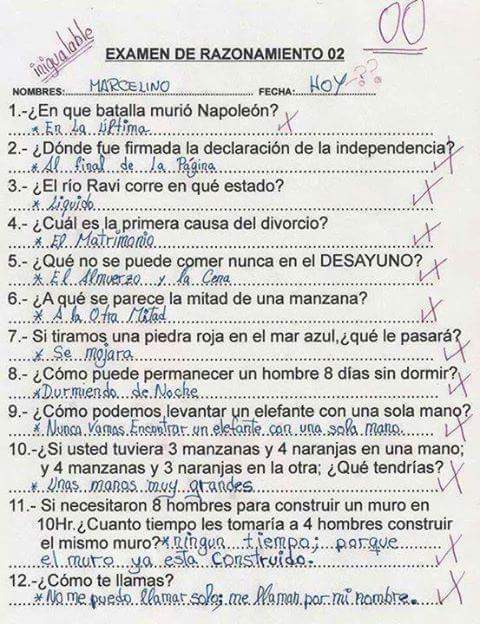 inigualable
00
EXAMEN DE RAZONAMIENTO 02
NOMBRES: MARCELINO FECHA: HOY -??
1.-¿En que batalla murió Napoleón?
* En la última
2.- ¿Dónde fue firmada la declaración de la independencia?
* Al final de la Página
3.- ¿El río Ravi corre en qué estado?
* Liquido
4.- ¿Cuál es la primera causa del divorcio?
* El Matrimonio
5.- ¿Qué no se puede comer nunca en el DESAYUNO?
* El Almuerzo y la Cena
6.- ¿A qué se parece la mitad de una manzana?
* A la Otra Mitad
7.- Si tiramos una piedra roja en el mar azul,¿qué le pasará?
* Se mojara
8.- ¿Cómo puede permanecer un hombre 8 días sin dormir?
*Durmiendo de Noche
9.- ¿Cómo podemos levantar un elefante con una sola mano?
* Nunca Vamos Encontrar un elefante con una sola mano.
10.-¿Si usted tuviera 3 manzanas y 4 naranjas en una mano;
y 4 manzanas y 3 naranjas en la otra; ¿Qué tendrías?
* Unas manos muy grandes
11.- Si necesitaron 8 hombres para construir un muro en
10Hr.¿Cuanto tiempo les tomaría a 4 hombres construir
el mismo muro?*ningun tiempo; porque
el muro ya esta construido.
12.-¿Cómo te llamas?
*No me puedo llamar solo; me llaman por mi nombre.